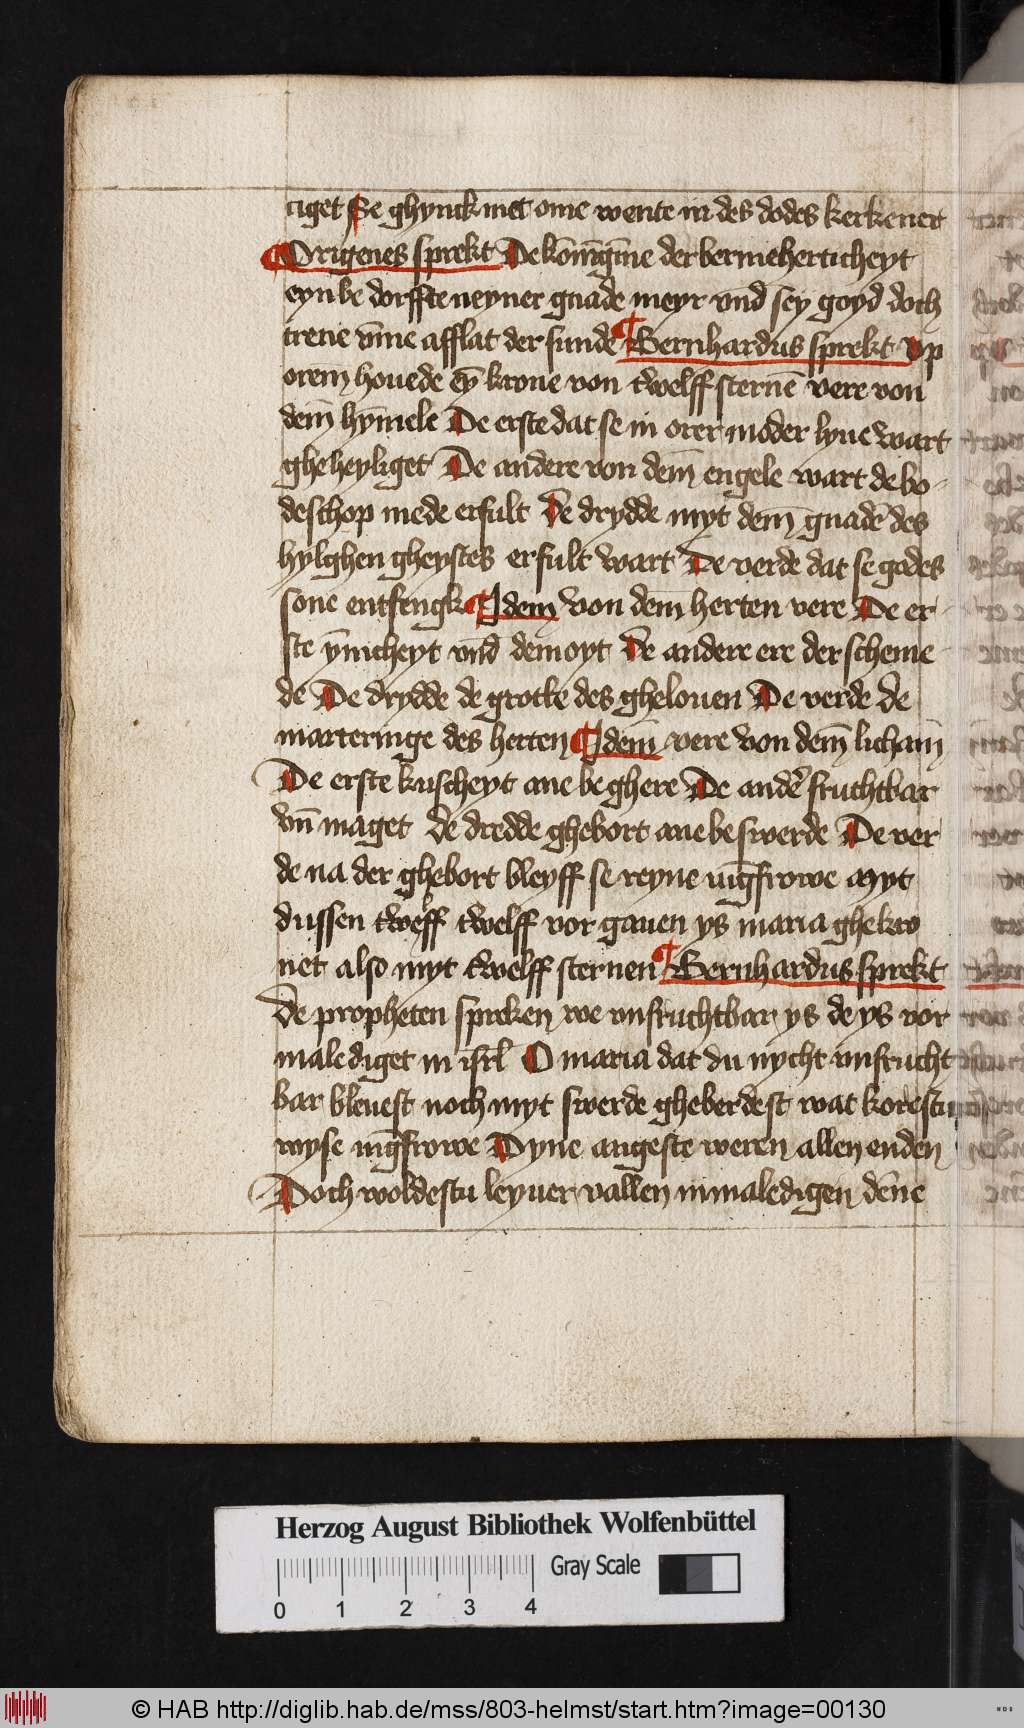 ciget Se ghynck met ome wente in des dodes kerkener
Origenes sprekt De kōnīgīne der bermeherticheyt
eyn be dorffte neyner gnade meyr vnd sey goyd doch
trene vm̄e afflat der sunde Bernhardus sprekt Vp
orem houede eȳ krone von twelff sternē vere von
dem̄ hym̄ele De erste dat se in orer moder lyue wart
gheheyliget De andere von dem̄ engele wart de bo-
deschop mede erfult De drydde myt dem̄ gnadē des
hylghen gheystes erfult wart De verde dat se godes
sone entfengk Idem von dem̄ herten vere De er-
ste ȳnicheyt vnd̄ demoyt De andere ere der scheme-
de De drydde de grotte des ghelouen De verde de
marteringe des herten Idem̄ vere von dem̄ licham̄
De erste kuscheyt ane beghere De ander̄ fruchtbar
vn̄ maget de dredde ghebort ane beswerde De ver
de na der ghebort bleyff se reyne iūgfrowe Myt
dussen twelff twelff vor gauen ys maria ghekro
net also myt twelff sternen Bernhardus sprekt
De propheten spreken we vnfruchtbar ys de ys vor
malediget in isrl̄ O maria dat du nycht vnfrucht
bar bleuest noch myt swerde gheberdest wat korestu
wyse iūgfrowe Dyne angeste weren allen enden
Doch woldestu leyuer vallen in maledigen dēne
Herzog August Bibliothek Wolfenbüttel
Gray Scale
0 1 2 3 4
© HAB http://diglib.hab.de/mss/803-helmst/start.htm?image=00130